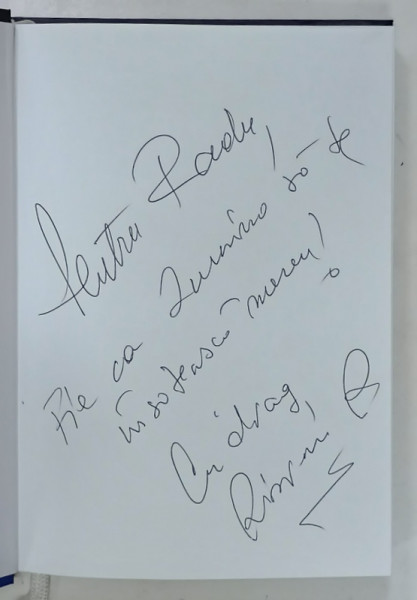 Pentru Radu,
Fie ca Lumina să te
însoțească mereu!
Cu drag,